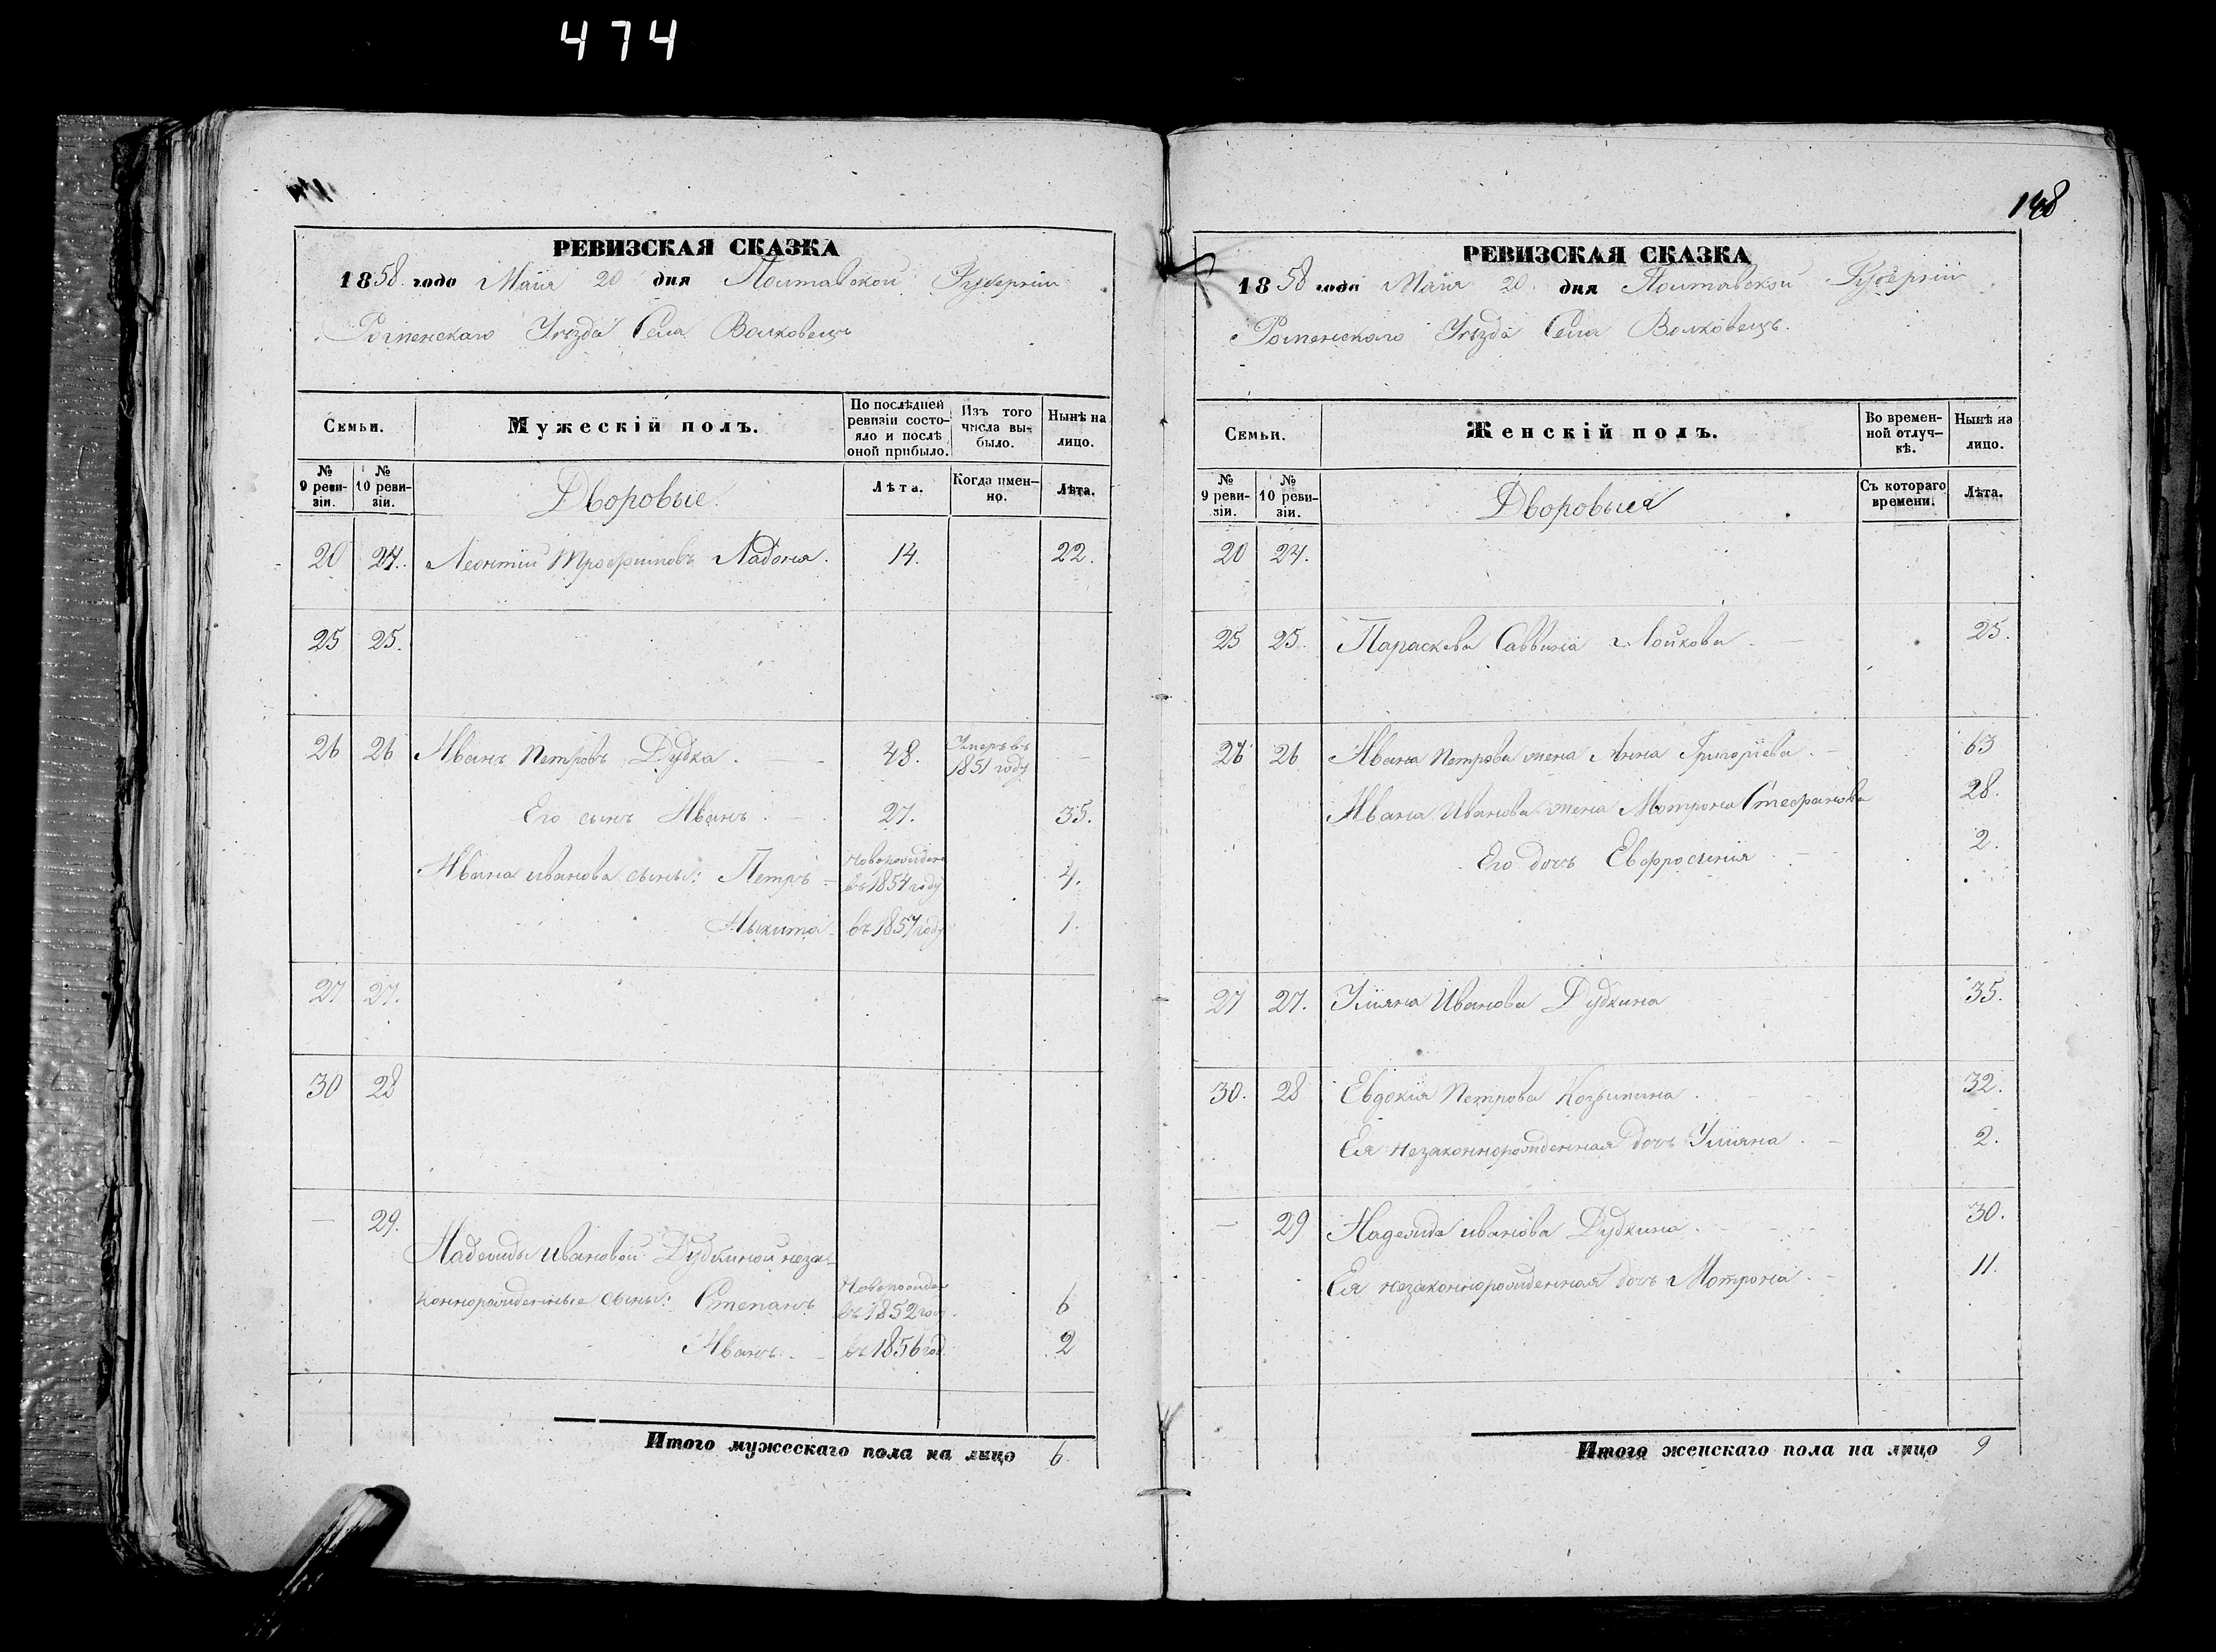 474
РЕВИЗСКАЯ СКАЗКА
1858 года Маія 20 дня Полтавской Губерніи
Роменскаго Уѣзда Села Волковецъ
Семьи.
Мужескій полъ.
По послѣдней ревизіи состояло и послѣ оной прибыло.
Изъ того числа выбыло.
Нынѣ на лицо.
№ 9 ревизіи.
№ 10 ревизіи.
Дворовые.
Лѣта.
Когда именно.
Лѣта.
20 24. Леонтій Трофимовъ Ладоня. 14. 22.
25 25.
26 26 Иванъ Петровъ Дудка. 48. Умеръ въ 1851 году —
Его сынъ Иванъ. 27. 35.
Ивана Иванова сыны: Петръ новорожден въ 1854 году 4.
Никита въ 1857 году 1.
27 27.
30 28
— 29. Надежды Ивановой Дудкиной неза-
коннорожденные сыны: Степанъ Новорожден въ 1852 году 6
Иванъ. въ 1856 год 2
Итого мужескаго пола на лицо 6.
148
РЕВИЗСКАЯ СКАЗКА
1858 года Маія 20. дня Полтавской Губерніи
Роменскаго Уѣзда Села Волковецъ.
Семьи.
Женскій полъ.
Во временной отлучкѣ.
Нынѣ на лицо.
№ 9 ревизіи.
№ 10 ревизіи.
Дворовыя
Съ котораго времени.
Лѣта.
20 24.
25 25. Параскева Саввина Лойкова 25.
26 26 Ивана Петрова жена Анна Григоріева. 63
Ивана Иванова жена Мотрона Стефанова 28.
Его дочь Евфросинія 2.
27 27. Уліяна Иванова Дудкина 35.
30. 28 Евдокія Петрова 32.
Ея незаконнорожденная дочь Уліяна. 2.
— 29 Надежда Иванова Дудкина. 30.
Ея незаконнорожденная дочь Мотрона. 11.
Итого женскаго пола на лицо 9